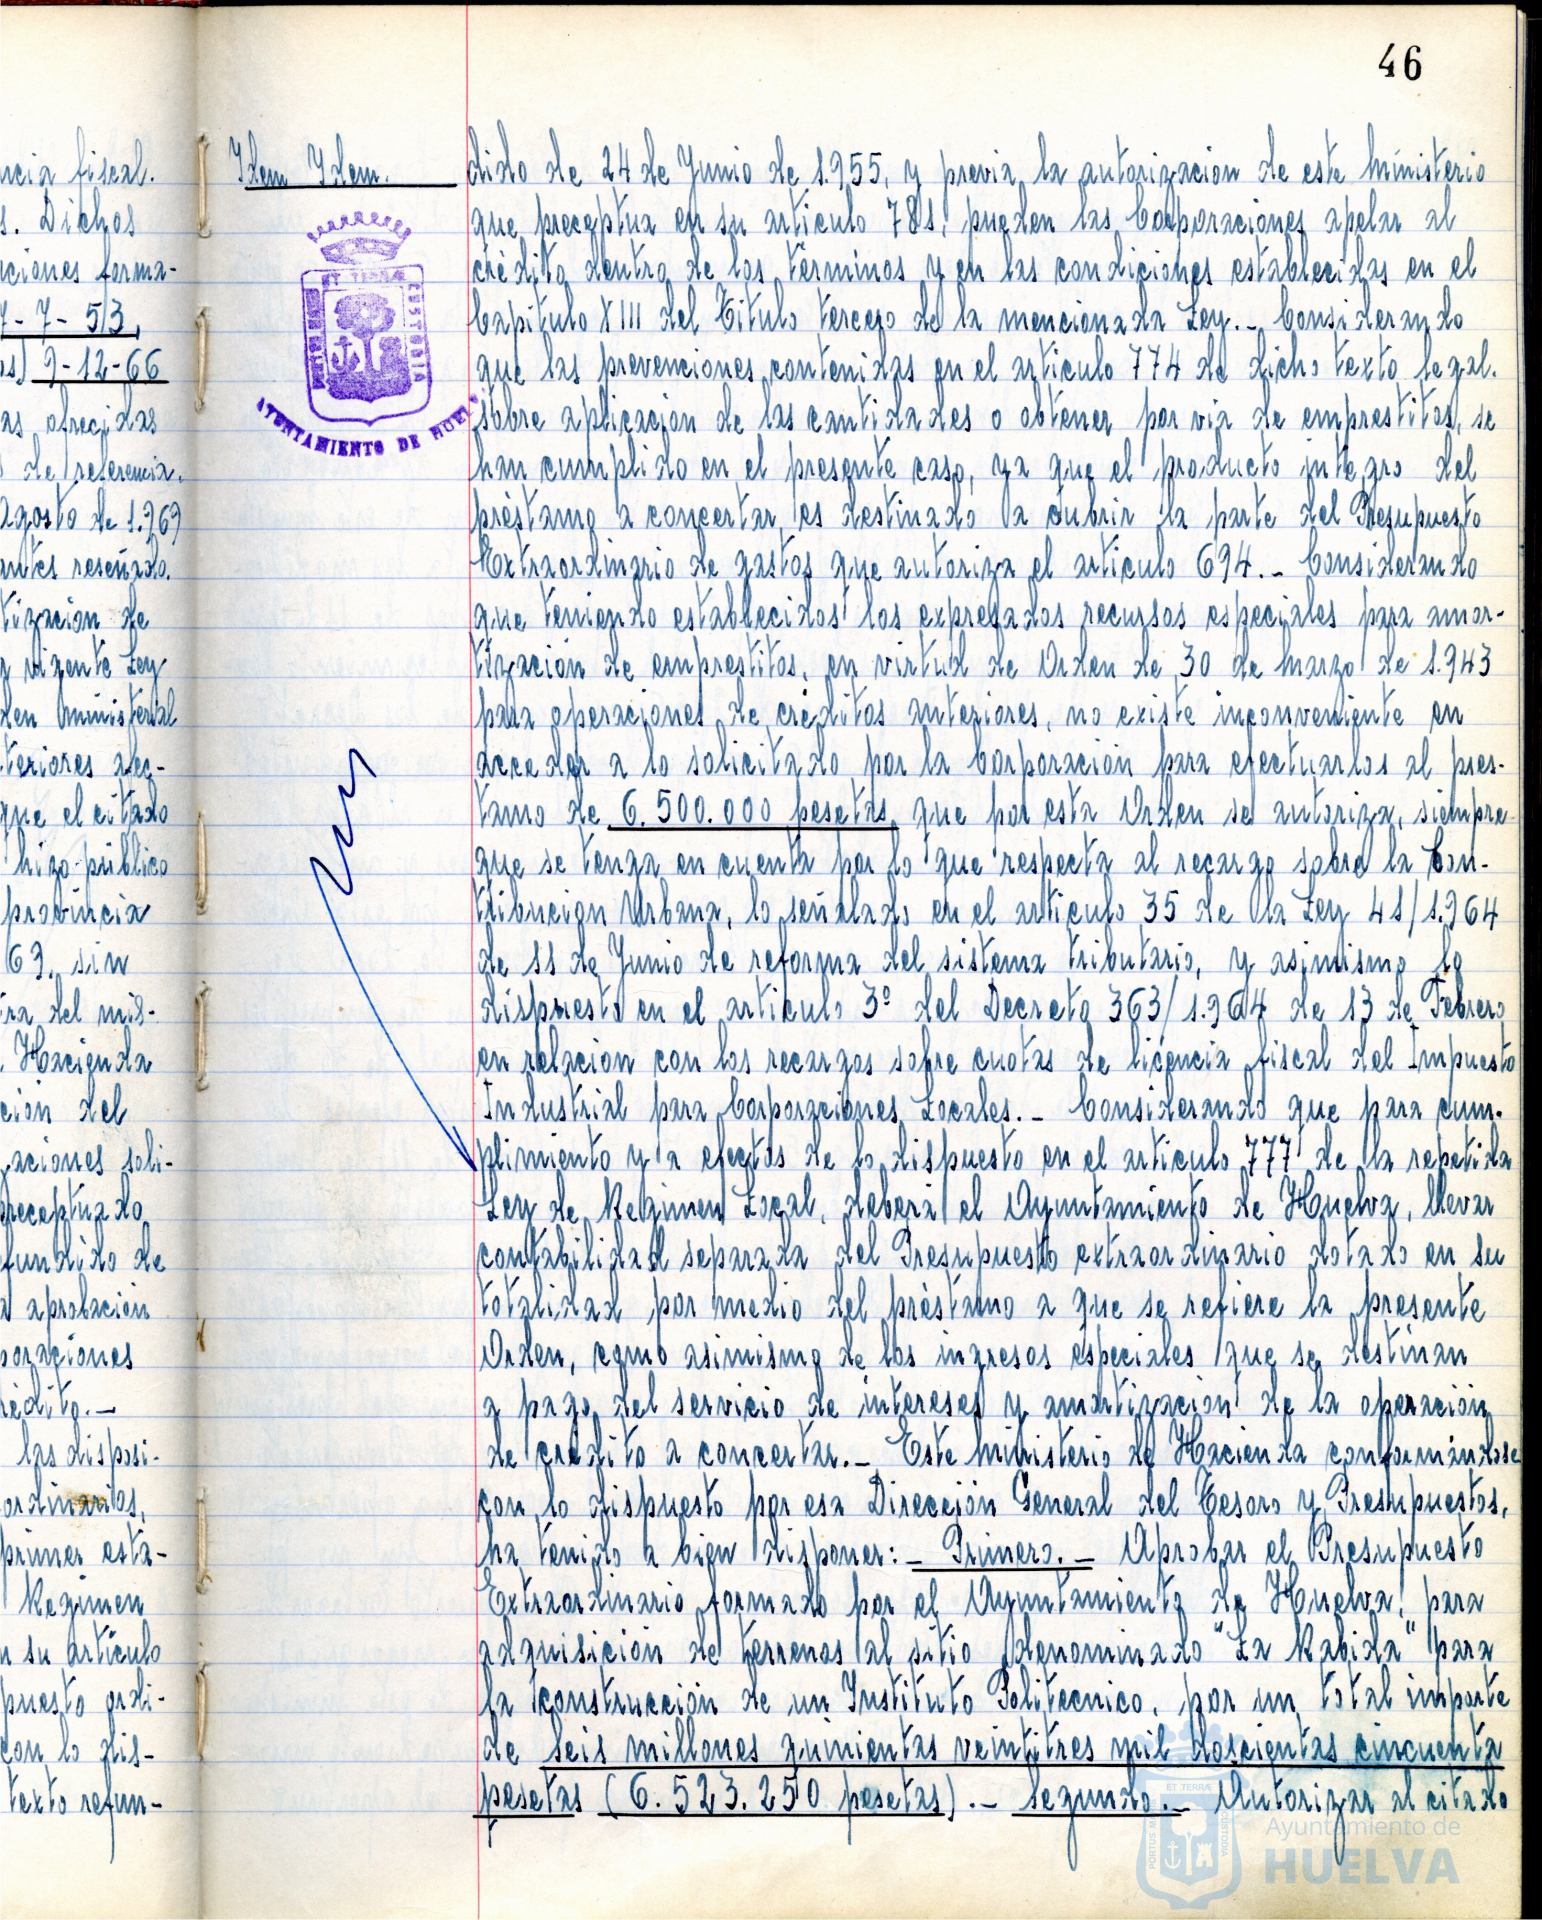 46
ncia fiscal.
s. Dichos
ciones forma-
7-7-53,
os) 9-12-66
as ofrecidas
de referencia.
agosto de 1.969
antes reseñado.
tización de
vigente Ley
den ministerial
teriores afec-
que el citado
hizo público
provincia
63, sin
ra del mis-
Hacienda
ción del
aciones soli-
preceptuado
fundido de
a aprobación
poraciones
rédito.-
las disposi-
ordinarios,
primer esta-
Regimen
n su artículo
puesto ordi-
con lo dis-
texto refun-
Idem Idem.
ET TERRAE
CUSTODIA
AYUNTAMIENTO DE HUELVA
dido de 24 de Junio de 1.955, y previa la autorización de este Ministerio
que preceptua en su articulo 781, pueden las Corporaciones apelar al
crédito dentro de los términos y en las condiciones establecidas en el
Capítulo XIII del Titulo tercero de la mencionada Ley.- Considerando
que las prevenciones contenidas en el articulo 774 de dicho texto legal.
sobre aplicación de las cantidades o obtener por via de emprestitos, se
han cumplido en el presente caso, ya que el producto integro del
préstamo a concertar es destinado a cubrir la parte del Presupuesto
Extraordinario de gastos que autoriza el articulo 694.- Considerando
que teniendo establecidos los expresados recursos especiales para amor-
tización de emprestitos, en virtud de Orden de 30 de Marzo de 1.943
para operaciones de créditos anteriores, no existe inconveniente en
acceder a lo solicitado por la Corporación para efectuarlos al pres-
tamo de 6.500.000 pesetas que por esta Orden se autoriza, siempre
que se tenga en cuenta por lo que respecta al recargo sobre la Con-
tribucion Urbana, lo señalado en el articulo 35 de la Ley 41/1.964
de 11 de Junio de reforma del sistema tributario, y asimismo lo
dispuesto en el articulo 3º del Decreto 363/1.964 de 13 de Febrero
en relacion con los recargos sobre cuotas de licencia fiscal del Impuesto
Industrial para Corporaciones Locales.- Considerando que para cum-
plimiento y a efectos de lo dispuesto en el articulo 777 de la repetida
Ley de Regimen Local, deberá el Ayuntamiento de Huelva, llevar
contabilidad separada del Presupuesto extraordinario dotado en su
totalidad por medio del préstamo a que se refiere la presente
Orden, como asimismo de los ingresos especiales que se destinan
a pago del servicio de intereses y amortizacion de la operación
de crédito a concertar.- Este Ministerio de Hacienda conformándose
con lo dispuesto por esa Dirección General del Tesoro y Presupuestos,
ha tenido a bien disponer:- Primero.- Aprobar el Presupuesto
Extraordinario formado por el Ayuntamiento de Huelva, para
adquisición de terrenos al sitio denominado "La Rabida" para
la construcción de un Instituto Politecnico, por un total importe
de seis millones quinientas veintitres mil doscientas cincuenta
pesetas (6.523.250 pesetas).- Segundo.- Autorizar al citado
ET TERRÆ
PORTUS MARIS
CUSTODIA
Ayuntamiento de
HUELVA